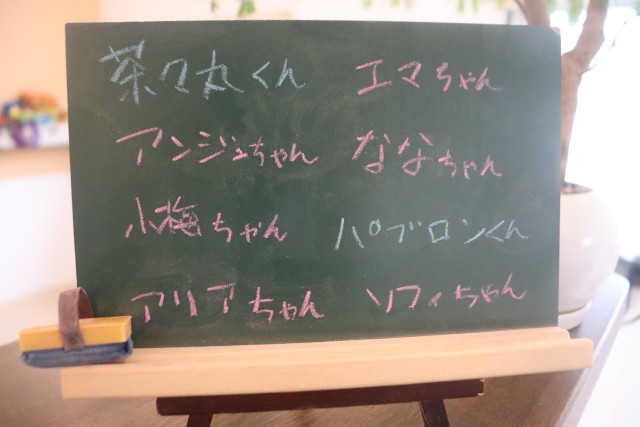 茶々丸くん エマちゃん
アンジュちゃん ななちゃん
小梅ちゃん パブロンくん
アリアちゃん ソフィちゃん